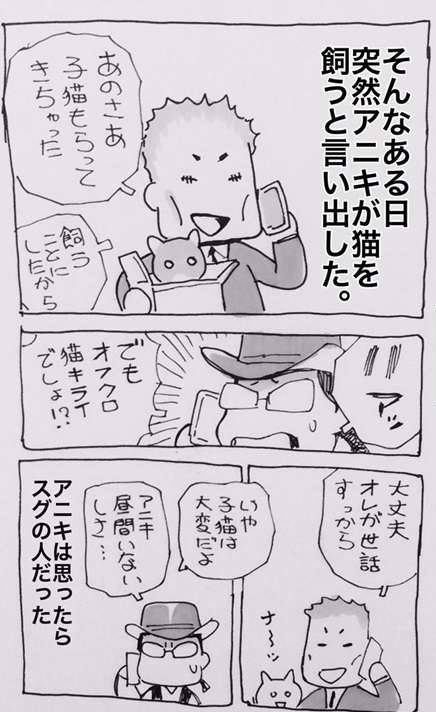 そんなある日
突然アニキが猫を
飼うと言い出した。
あのさぁ
子猫もらって
きちゃった
飼う
ことに
したから
ア゛ッ
でも
オフクロ
猫キライ
でしょ!?
大丈夫
オレが世話
すっから
ナ〜ッ
いや
子猫は
大変だよ
アニキ
昼間いない
しさ…
アニキは思ったら
スグの人だった